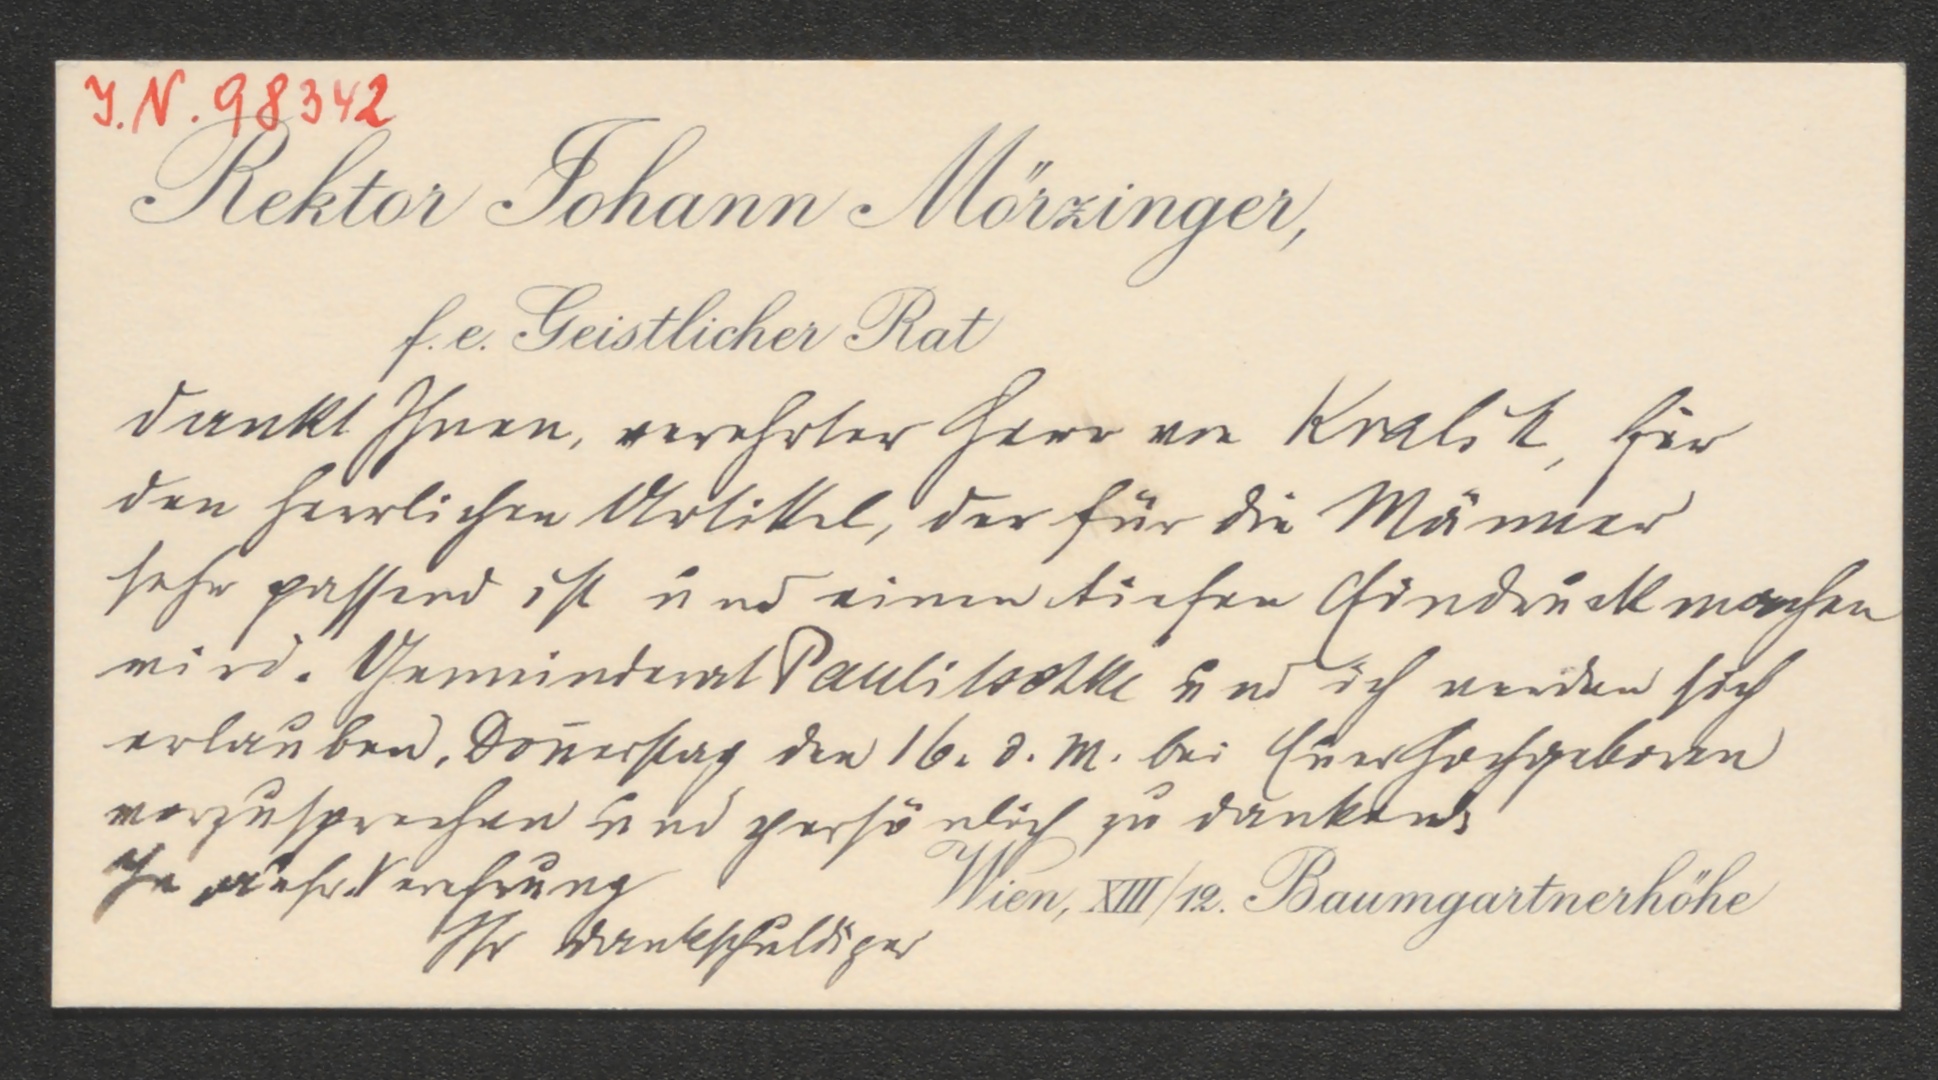 I.N. 98342
Rektor Johann Mörzinger,
f. e. Geistlicher Rat
dankt Ihnen, verehrter Herr von Kralik, für
den herrlichen Artikel, der für die Männer
sehr passend ist und einen tiefen Eindruck machen
wird. Gemeinderat Paulitschke und ich werden sich
erlauben, Don̄erstag den 16. d. M. bei Euer Hochgeboren
vorzusprechen und persönlich zu danken.
In Verehrung
Wien, XIII/12. Baumgartnerhöhe
Ihr dankschuldiger